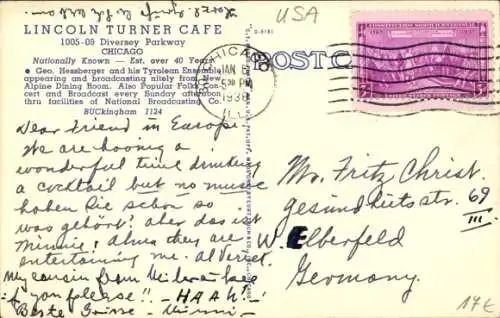 USA
LINCOLN TURNER CAFE
1005-09 Diversey Parkway
CHICAGO
Nationally Known — Est. over 40 Years
• Geo. Hessberger and his Tyrolean Ensemble
appearing and broadcasting nitely from New
Alpine Dining Room. Also Popular Folks Con-
cert and Broadcast every Sunday afternoon
thru facilities of National Broadcasting Co.
BUCkingham 1124
D-5181
POST CA
CHICAGO
JAN 6
5 30 PM
1938
ILL.
3¢
Dear Friend in Europe.
We are having a
wonderful time drinking
a cocktail but no music
haben Sie schon so
was gehört? aber das ist
Minnie; they are
entertaining me.
My cousin from Milwaukee
if you please!! - HAAH! -
Beste Grüsse - Minni -
Mr. Fritz Christ.
Gesundheitsstr. 69
III.
W. Elberfeld
Germany.
17€